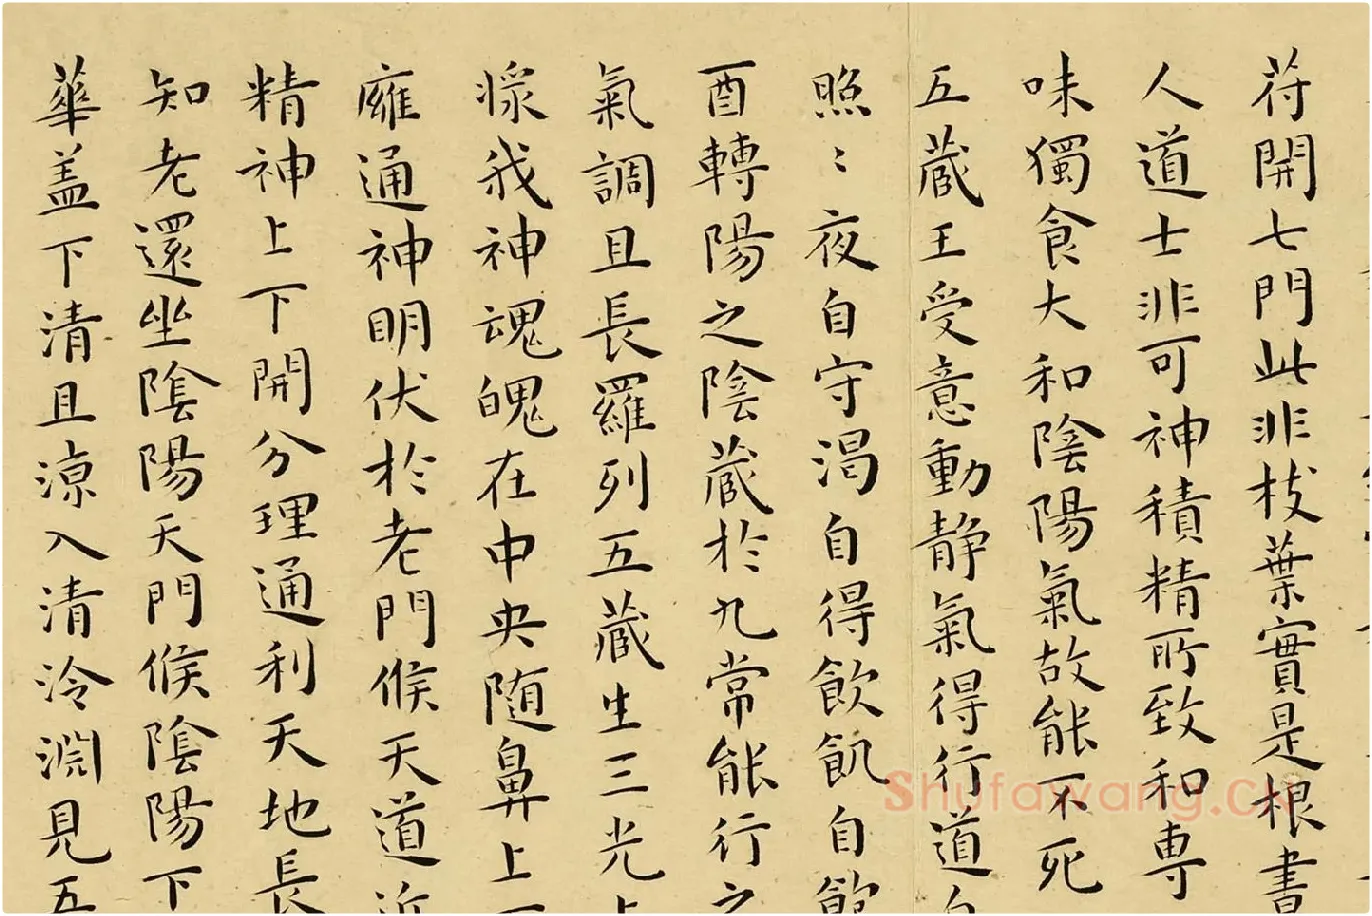 符開七門此非枝葉實是根書
人道士非可神積精所致和専
味獨食大和陰陽氣故能不死
五藏王受意動静氣得行道自
照〻夜自守渴自得飲飢自飽
酉轉陽之陰藏於九常能行之
氣調且長羅列五藏生三光上
我神魂魄在中央随鼻上
癰通神明伏於老門候天道近
精神上下開分理通利天地長
知老還坐陰陽天門候陰陽下
華盖下清且涼入清泠淵見五
Shufawang.CN